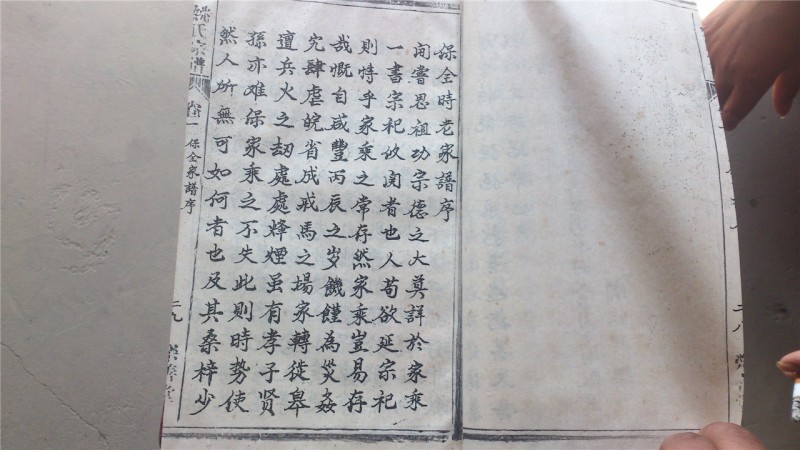 保全時老家譜序
間嘗思祖功宗德之大莫詳於家乘
一書宗祀攸関者也人苟欲延宗祀
則恃乎家乘之常存然家乘豈易存
哉慨自咸豐丙辰之岁饑饉為災姦
宄肆虐皖省成戎馬之場家轉徙皋
遭兵火之刼處處烽煙虽有孝子贤
孫亦难保家乘之不失此則時势使
然人所無可如何者也及其桑梓少
氏宗譜
卷一
保全家譜序
二九
二八